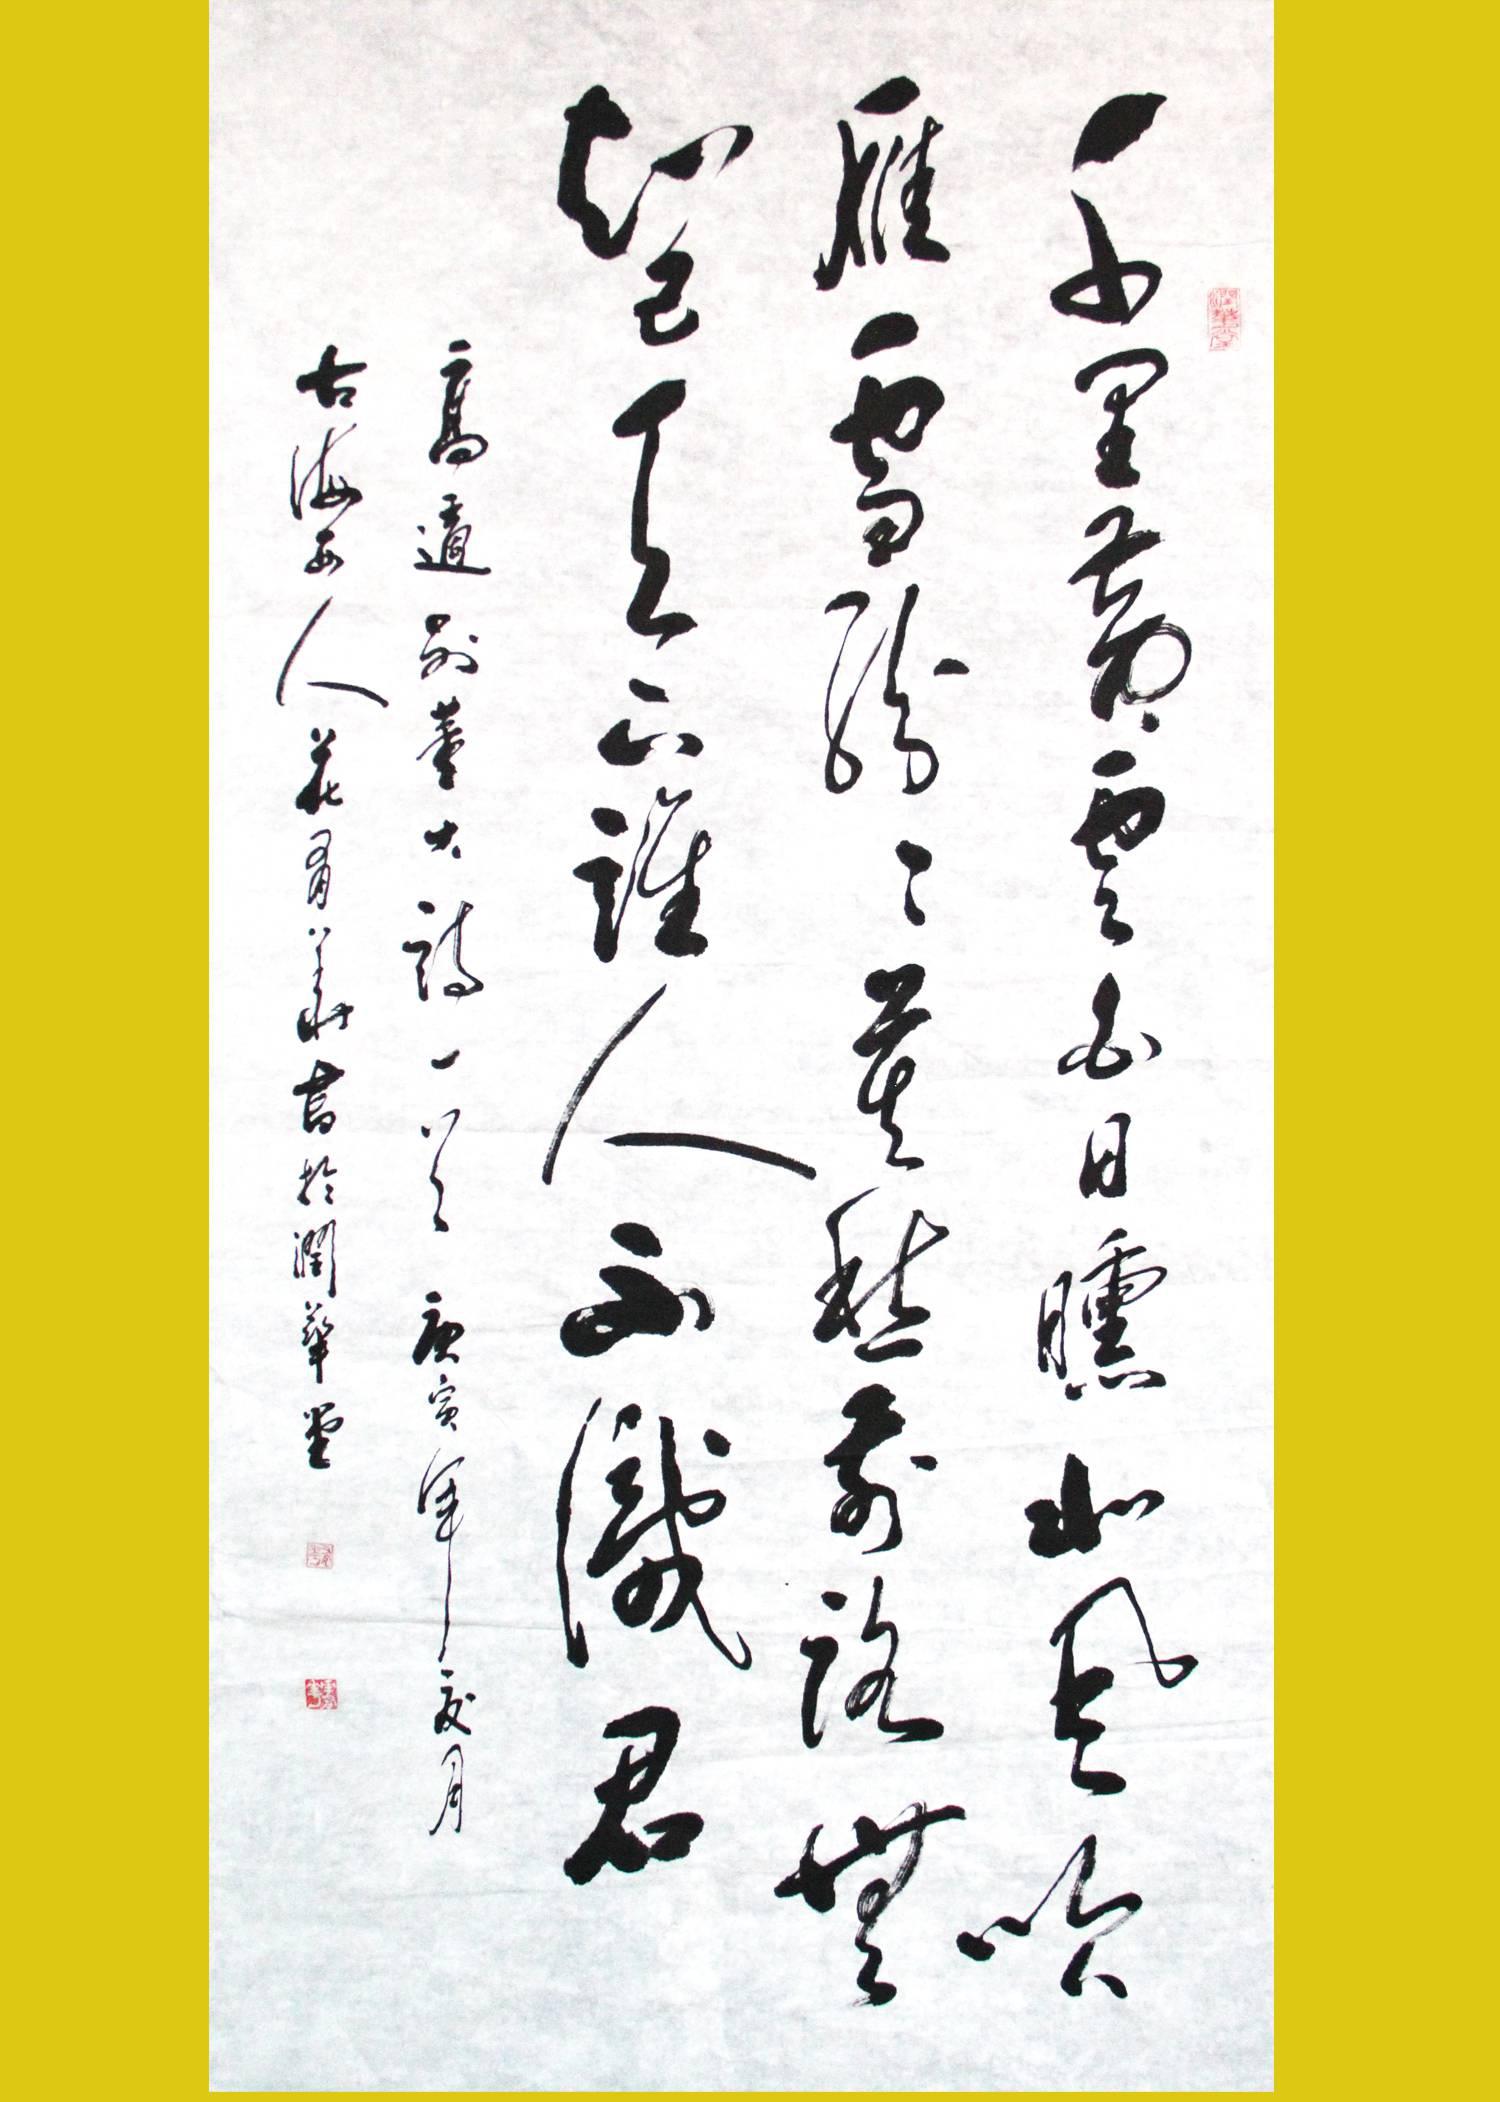 潤華堂
千里黄雲白日曛北風吹
雁雪紛〻莫愁前路無
知己天下誰人不識君
高適別董大詩一首 庚寅年夏月
古海西人 書於潤華堂